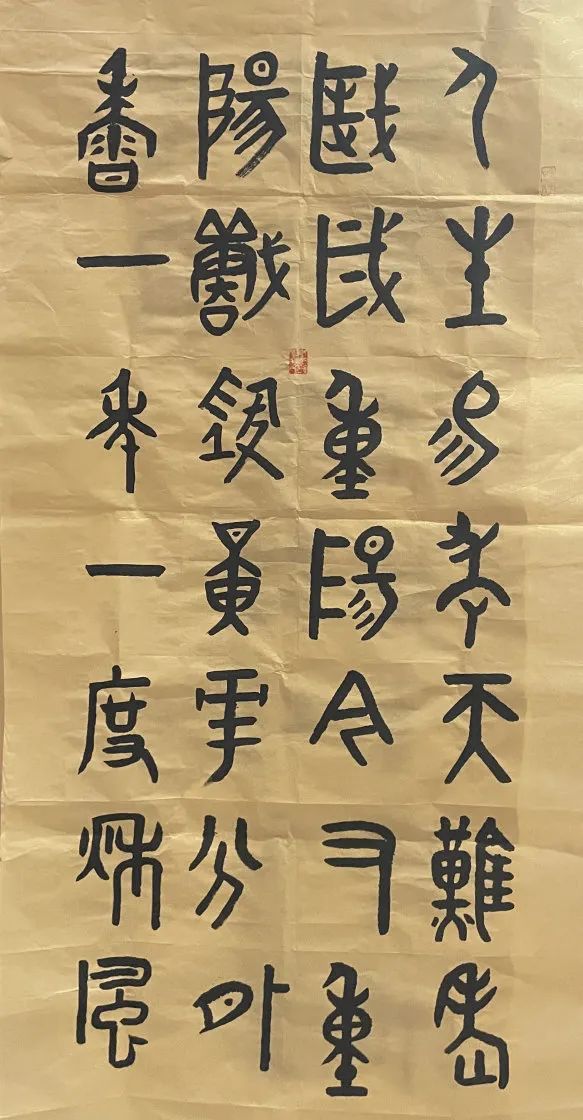 人生易老天難老
歲歲重陽今又重
陽戰地黃華分外
香一年一度秋風